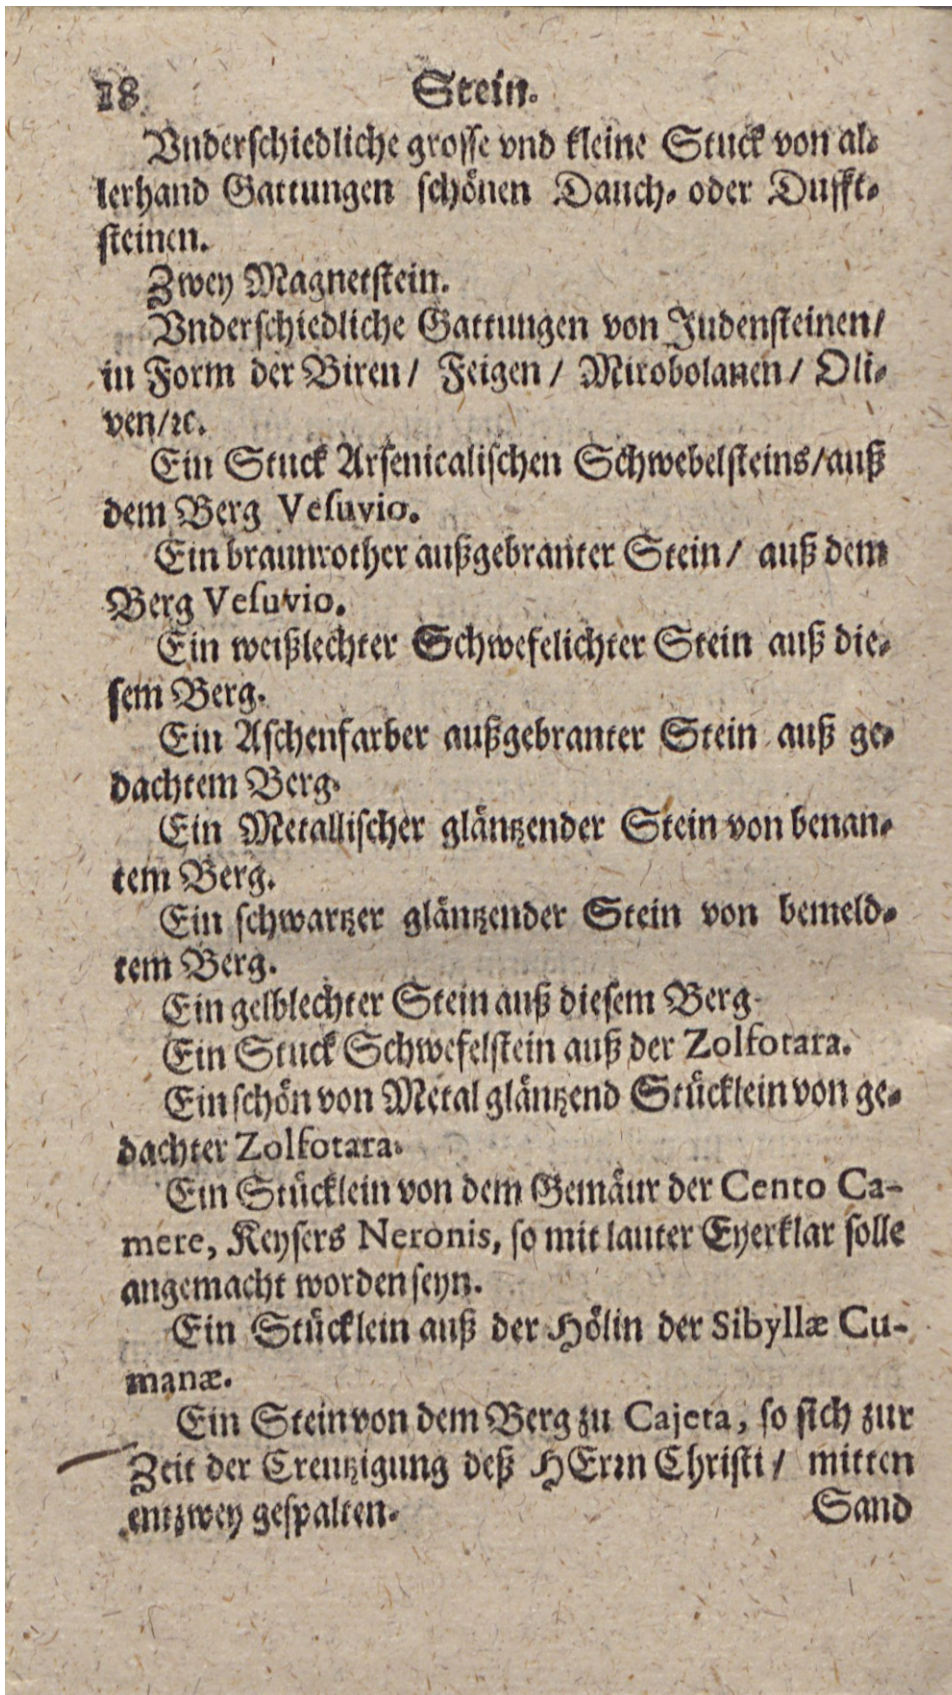 18 Stein.
Vnderschiedliche grosse vnd kleine Stuck von al-
lerhand Gattungen schönen Dauch- oder Dufft-
steinen.
Zwey Magnetstein.
Vnderschiedliche Gattungen von Judensteinen/
in Form der Biren/ Feigen/ Mirobolanen/ Oli-
ven/ꝛc.
Ein Stuck Arsenicalischen Schwebelsteins/auß
dem Berg Vesuvio.
Ein braunrother außgebranter Stein/ auß dem
Berg Vesuvio.
Ein weißlechter Schwefelichter Stein auß die-
sem Berg.
Ein Aschenfarber außgebranter Stein auß ge-
dachtem Berg.
Ein Metallischer gläntzender Stein von benan-
tem Berg.
Ein schwartzer gläntzender Stein von bemeld-
tem Berg.
Ein gelblechter Stein auß diesem Berg.
Ein Stuck Schwefelstein auß der Zolfotara.
Ein schön von Metal gläntzend Stücklein von ge-
dachter Zolfotara.
Ein Stücklein von dem Gemäur der Cento Ca-
mere, Keysers Neronis, so mit lauter Eyerklar solle
angemacht worden seyn.
Ein Stücklein auß der Hölin der Sibyllæ Cu-
manæ.
Ein Stein von dem Berg zu Cajeta, so sich zur
Zeit der Creutzigung deß HErꝛn Christi/ mitten
entzwey gespalten.
Sand